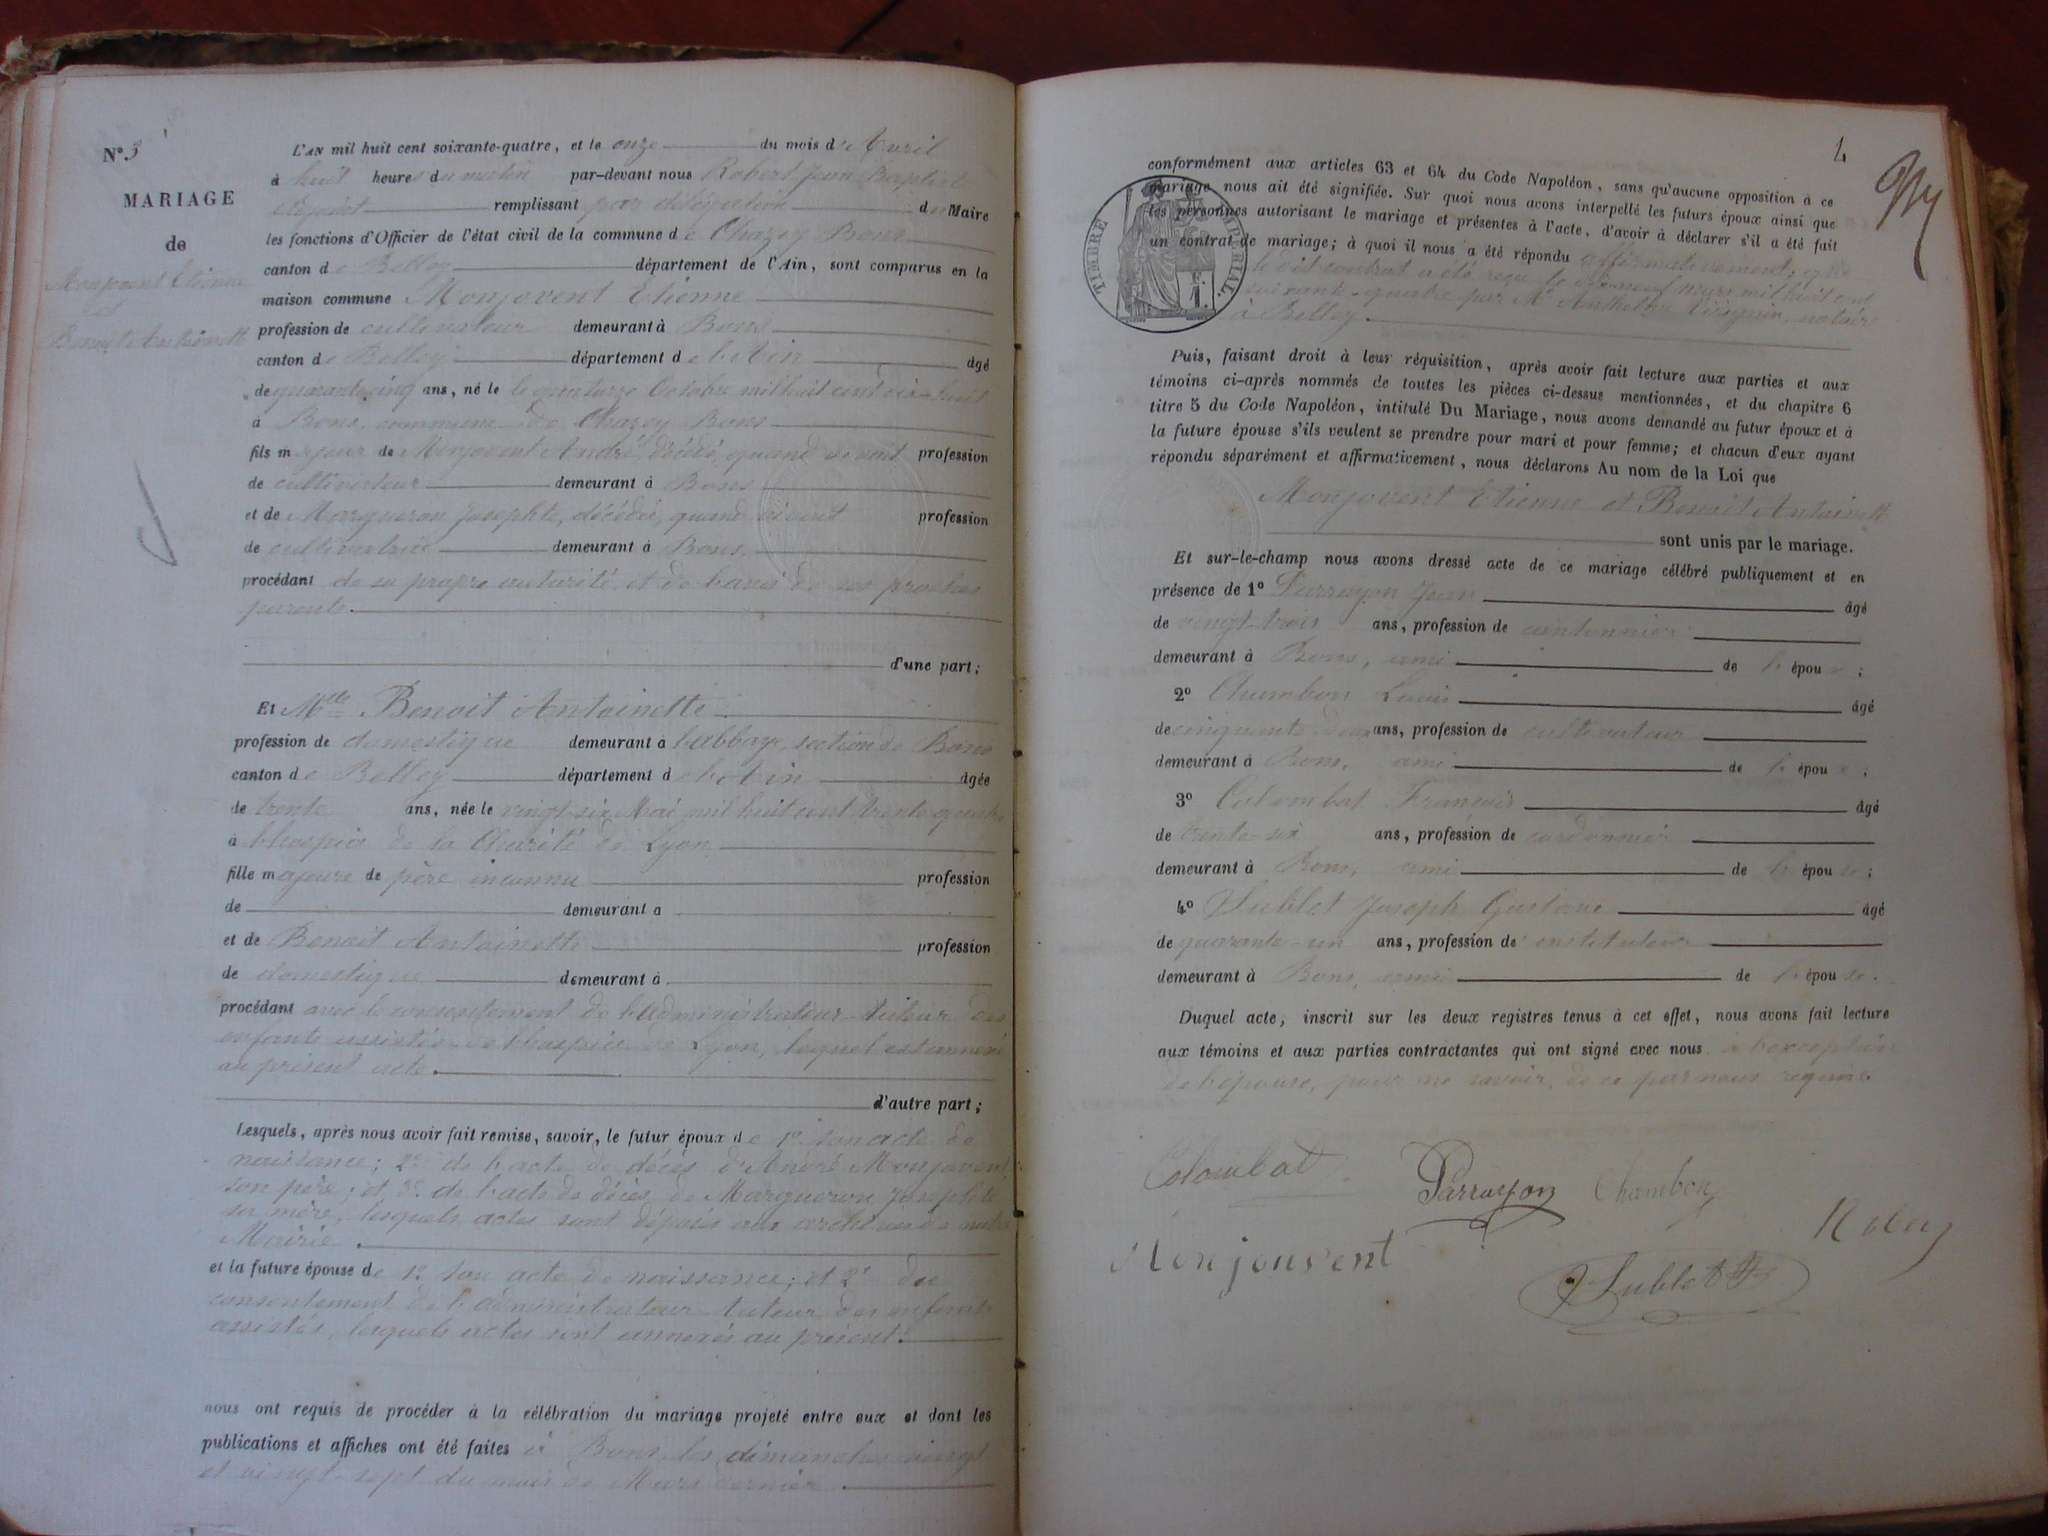 N.º 3
MARIAGE
de
Monjovent Etienne
et
Benoit Antoinette
L'AN mil huit cent soixante-quatre, et le onze du mois d'Avril
à huit heures du matin par-devant nous Robert Jean Baptist
adjoint remplissant par délégation du Maire
les fonctions d'Officier de l'état civil de la commune de Chazey Bons
canton de Belley département de l'Ain, sont comparus en la
maison commune Monjovent Etienne
profession de cultivateur demeurant à Bons
canton de Belley département de l'Ain âgé
de quarante cinq ans, né le le quatorze Octobre mil huit cent dix-huit
à Bons, commune de Chazey Bons
fils majeur de Monjovent André, décédé, quand vivait profession
de cultivateur demeurant à Bons
et de Margueron Josephte, décédée, quand vivait profession
de cultivatrice demeurant à Bons.
procédant de sa propre autorité et de l'avis de ses proches
parents.
d'une part;
Et Mlle Benoit Antoinette
profession de domestique demeurant à l'abbaye, section de Bons
canton de Belley département de l'Ain âgée
de trente ans, née le vingt-six Mai mil huit cent trente quatre
à l'hospice de la Charité de Lyon
fille majeure de père inconnu profession
de demeurant à
et de Benoit Antoinette profession
de domestique demeurant à
procédant avec le consentement de l'administrateur-tuteur des
enfants assistés de l'hospice de Lyon, lequel est annexé
au présent acte.
d'autre part;
Lesquels, après nous avoir fait remise, savoir, le futur époux de 1º son acte de
naissance; 2º de l'acte de décès d'André Monjovent
son père; et 3º de l'acte de décès de Margueron Josephte
sa mère, lesquels actes sont déposés aux archives de notre
Mairie.
et la future épouse de 1º son acte de naissance; et 2º du
consentement de l'administrateur-tuteur des enfants
assistés, lesquels actes sont annexés au présent.
nous ont requis de procéder à la célébration du mariage projeté entre eux et dont les
publications et affiches ont été faites à Bons les dimanches vingt
et vingt-sept du mois de Mars dernier
4
conformément aux articles 63 et 64 du Code Napoléon, sans qu'aucune opposition à ce
mariage nous ait été signifiée. Sur quoi nous avons interpellé les futurs époux ainsi que
les personnes autorisant le mariage et présentes à l'acte, d'avoir à déclarer s'il a été fait
un contrat de mariage; à quoi il nous a été répondu affirmativement; que
le dit contrat a été reçu le dix-neuf mars mil huit cent
soixante-quatre par Me Anthelme notaire
à Belley.
TIMBRE IMPÉRIAL
F.
1.
Puis, faisant droit à leur réquisition, après avoir fait lecture aux parties et aux
témoins ci-après nommés de toutes les pièces ci-dessus mentionnées, et du chapitre 6
titre 5 du Code Napoléon, intitulé Du Mariage, nous avons demandé au futur époux et à
la future épouse s'ils veulent se prendre pour mari et pour femme; et chacun d'eux ayant
répondu séparément et affirmativement, nous déclarons Au nom de la Loi que
Monjovent Etienne et Benoit Antoinette
sont unis par le mariage.
Et sur-le-champ nous avons dressé acte de ce mariage célébré publiquement et en
présence de 1º Parrayon Jean âgé
de vingt-trois ans, profession de cantonnier
demeurant à Bons, ami de l'époux;
2º Chambon Louis âgé
de cinquante-deux ans, profession de cultivateur
demeurant à Bons, ami de l'époux;
3º Colombat François âgé
de trente-six ans, profession de cordonnier
demeurant à Bons, ami de l'épouse;
4º Sublet Joseph Gustave âgé
de quarante-un ans, profession de instituteur
demeurant à Bons, ami de l'épouse.
Duquel acte, inscrit sur les deux registres tenus à cet effet, nous avons fait lecture
aux témoins et aux parties contractantes qui ont signé avec nous à l'exception
de l'épouse, pour ne savoir, de ce par nous requise.
Colombat Parrayon Chambon
Monjouvent Sublet